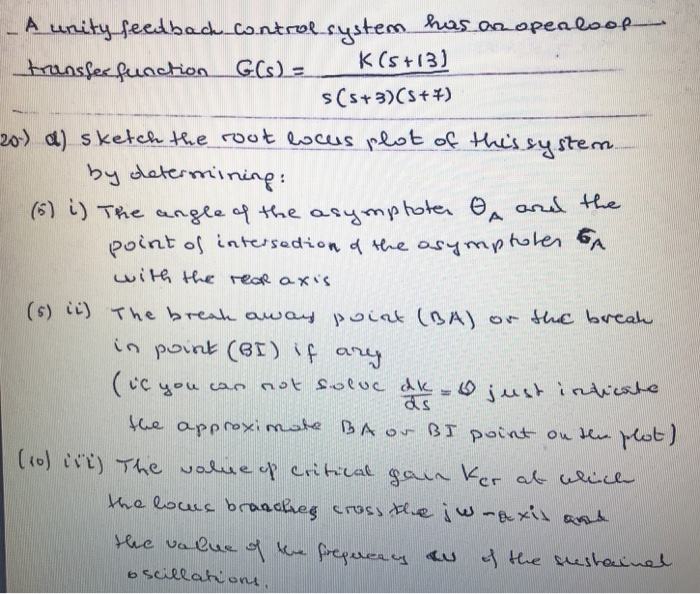 A unity feedback control system has an open loop
transfer function G(s) = K(s+13)
s(s+3)(s+7)
20-) a) sketch the root locus plot of this system
by determining:
(5) i) The angle of the asymptotes θA and the
point of intersection of the asymptotes σA
with the real axis
(5) ii) The break away point (BA) or the break
in point (BI) if any
(if you can not solve dk/ds = 0 just indicate
the approximate BA or BI point on the plot)
(10) iii) The value of critical gain Kcr at which
the locus branches cross the jw-axis and
the value of the frequency of the sustained
oscillations.